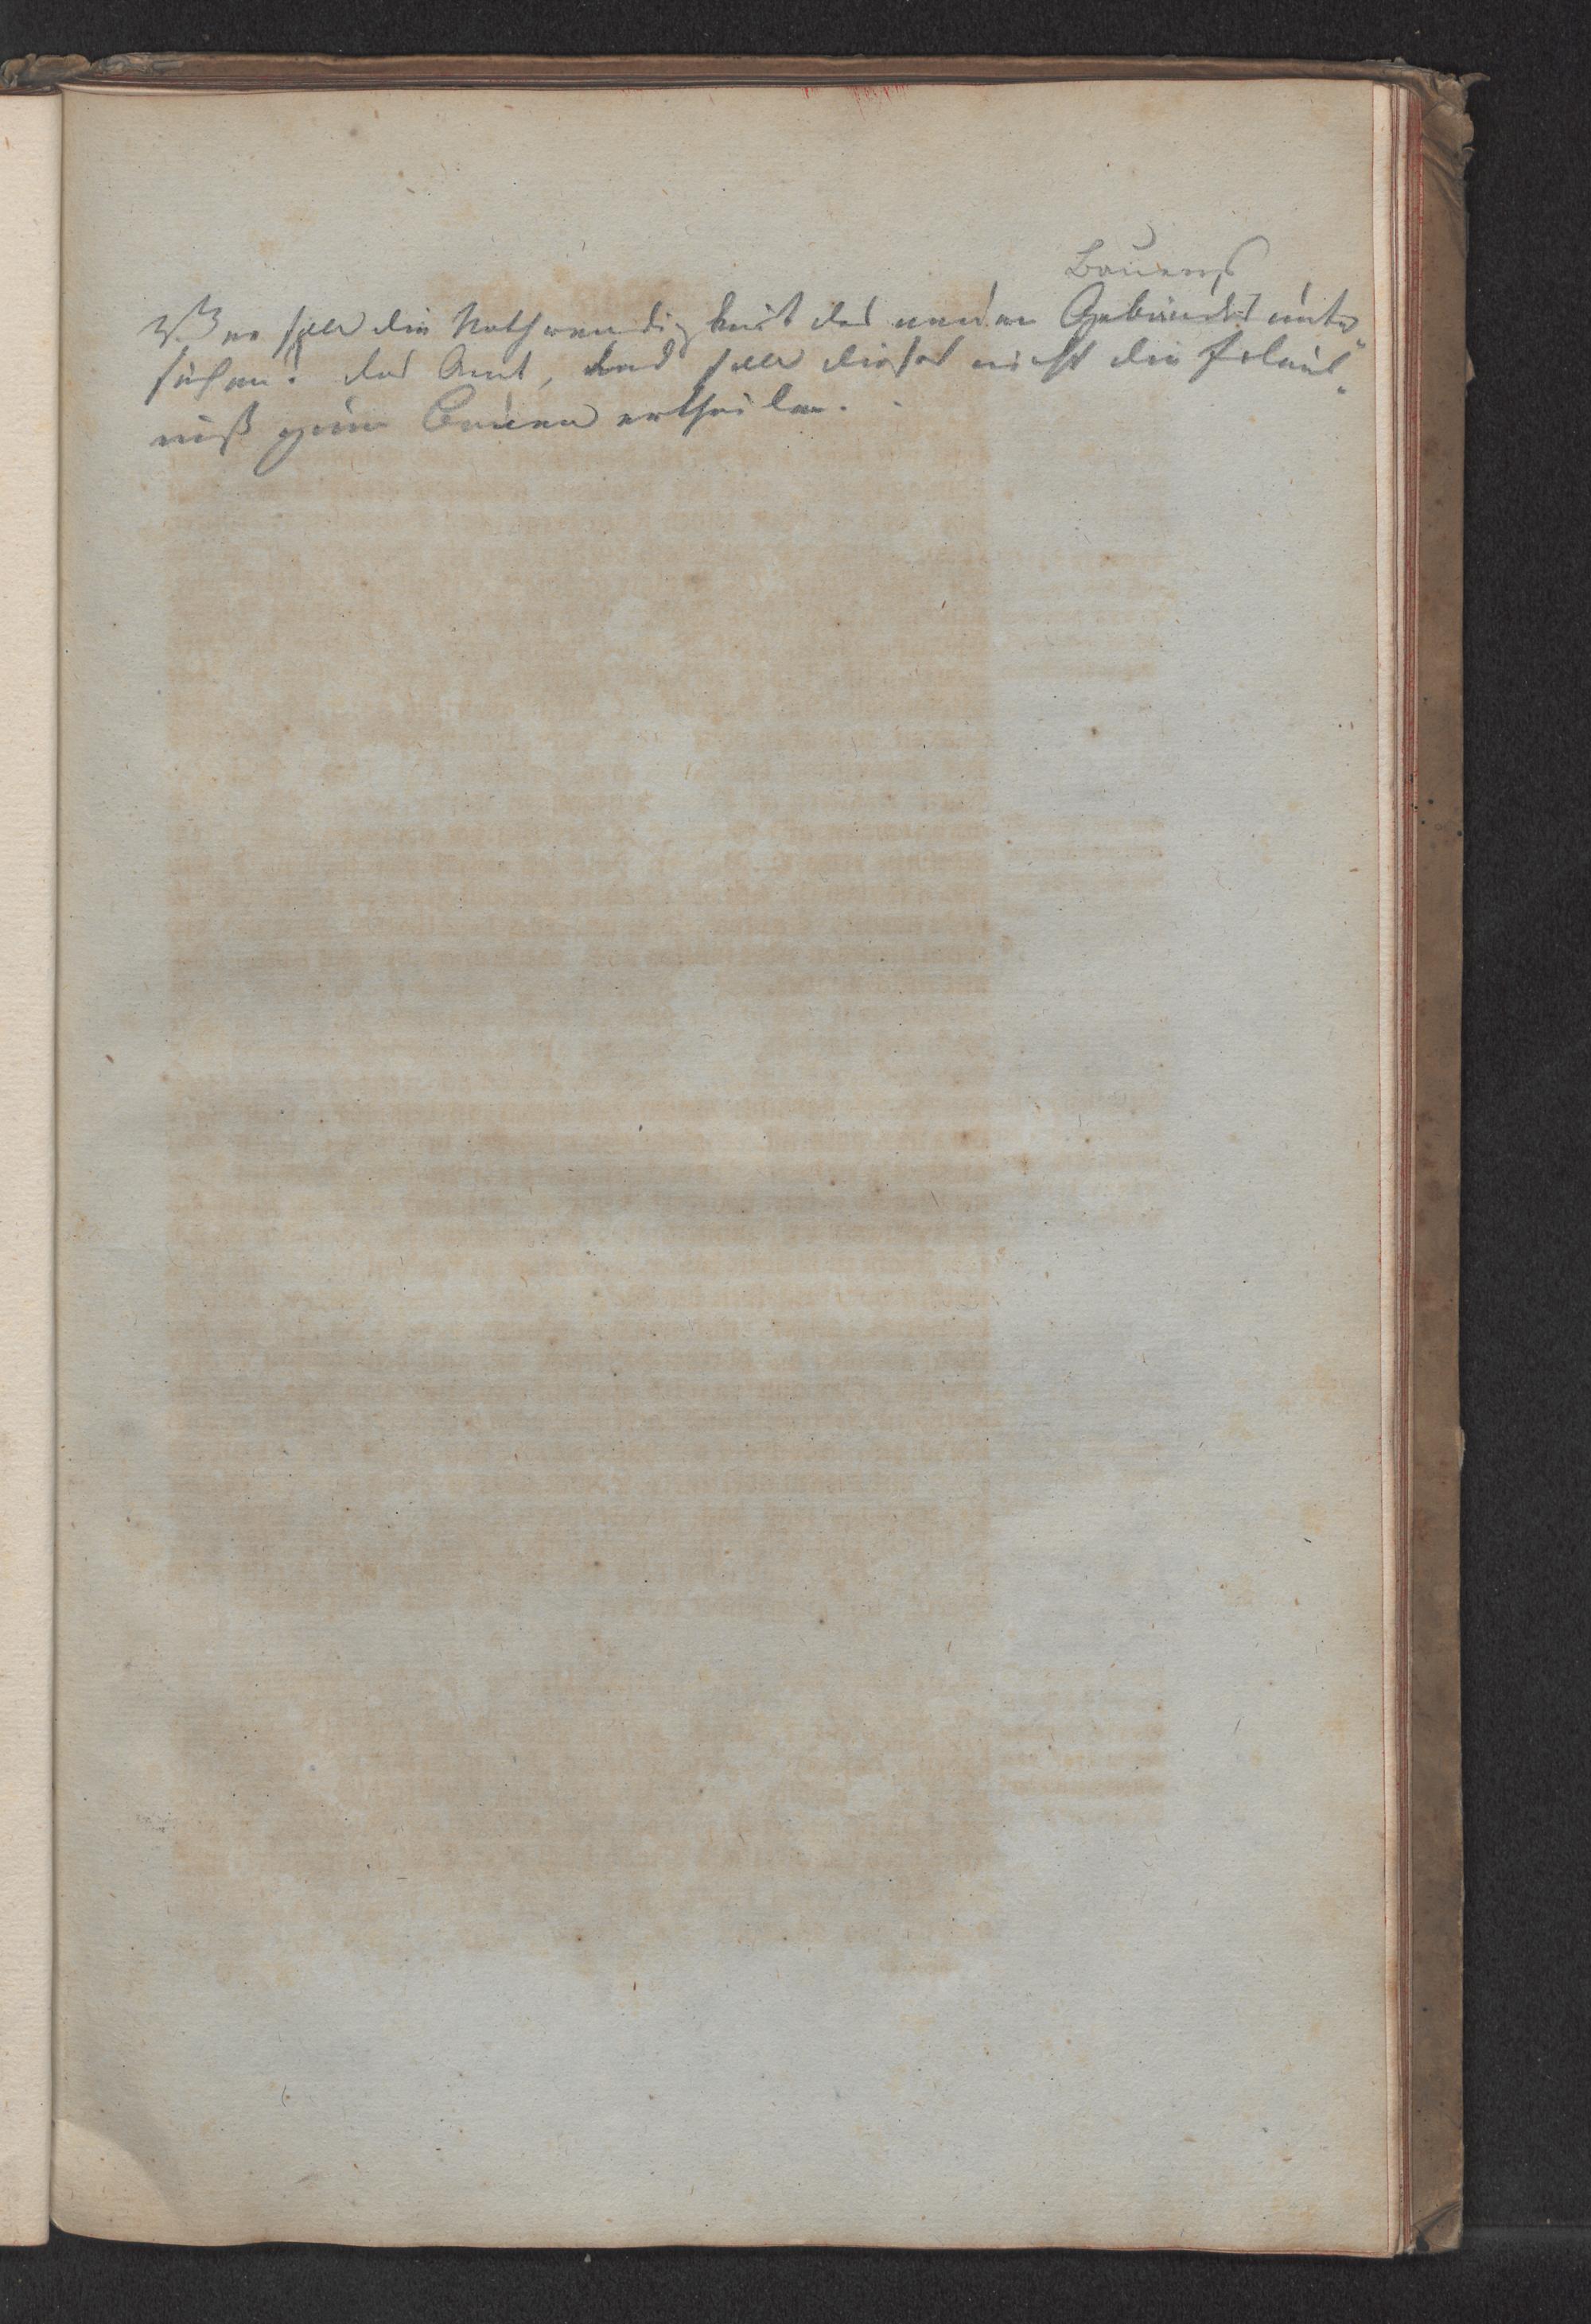 Bauens
Wer soll die Nothwendigkeit des neuen Gebäudes unter„
suchen? das Amt, und soll dieses nicht die Erlaub„
niß zum Bauen ertheilen.